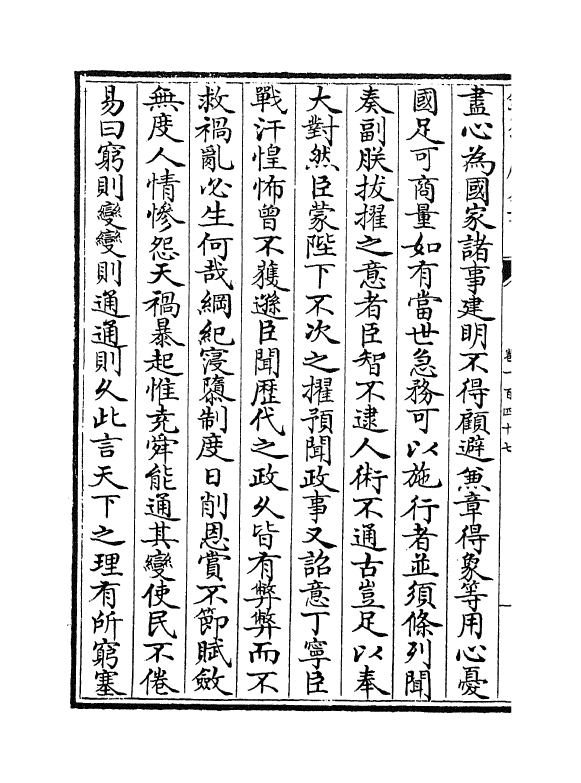 卷一百四十七
盡心為國家諸事建明不得顧避兼章得象等用心憂
國足可商量如有當世急務可以施行者並須條列聞
奏副朕拔擢之意者臣智不逮人術不通古豈足以奉
大對然臣蒙陛下不次之擢預聞政事又詔意丁寧臣
戰汗惶怖曾不獲遜臣聞歴代之政久皆有弊弊而不
救禍亂必生何哉綱紀寖隳制度日削恩賞不節賦斂
無度人情慘怨天禍暴起惟堯舜能通其變使民不倦
易曰窮則變變則通通則久此言天下之理有所窮塞